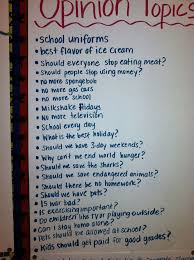 Opinion Topics
• school uniforms
• best flavor of ice cream
• Should everyone stop eating meat?
• Should people stop using money?
• no more spongebob
• no more gas cars
• no more school
• Milkshake Fridays
• No more television
• School every day
• What is the best holiday?
• Should we have 3-day weekends?
• Why can't we end world hunger?
• Should we save the sharks?
• Should we save endangered animals?
• Should there be no homework?
• Should we have pets?
• Is war bad?
• Is exercising important?
• Do children like TV or playing outside?
• Can I stay home alone?
• Should pets be allowed at school?
• Kids should get paid for good grades?